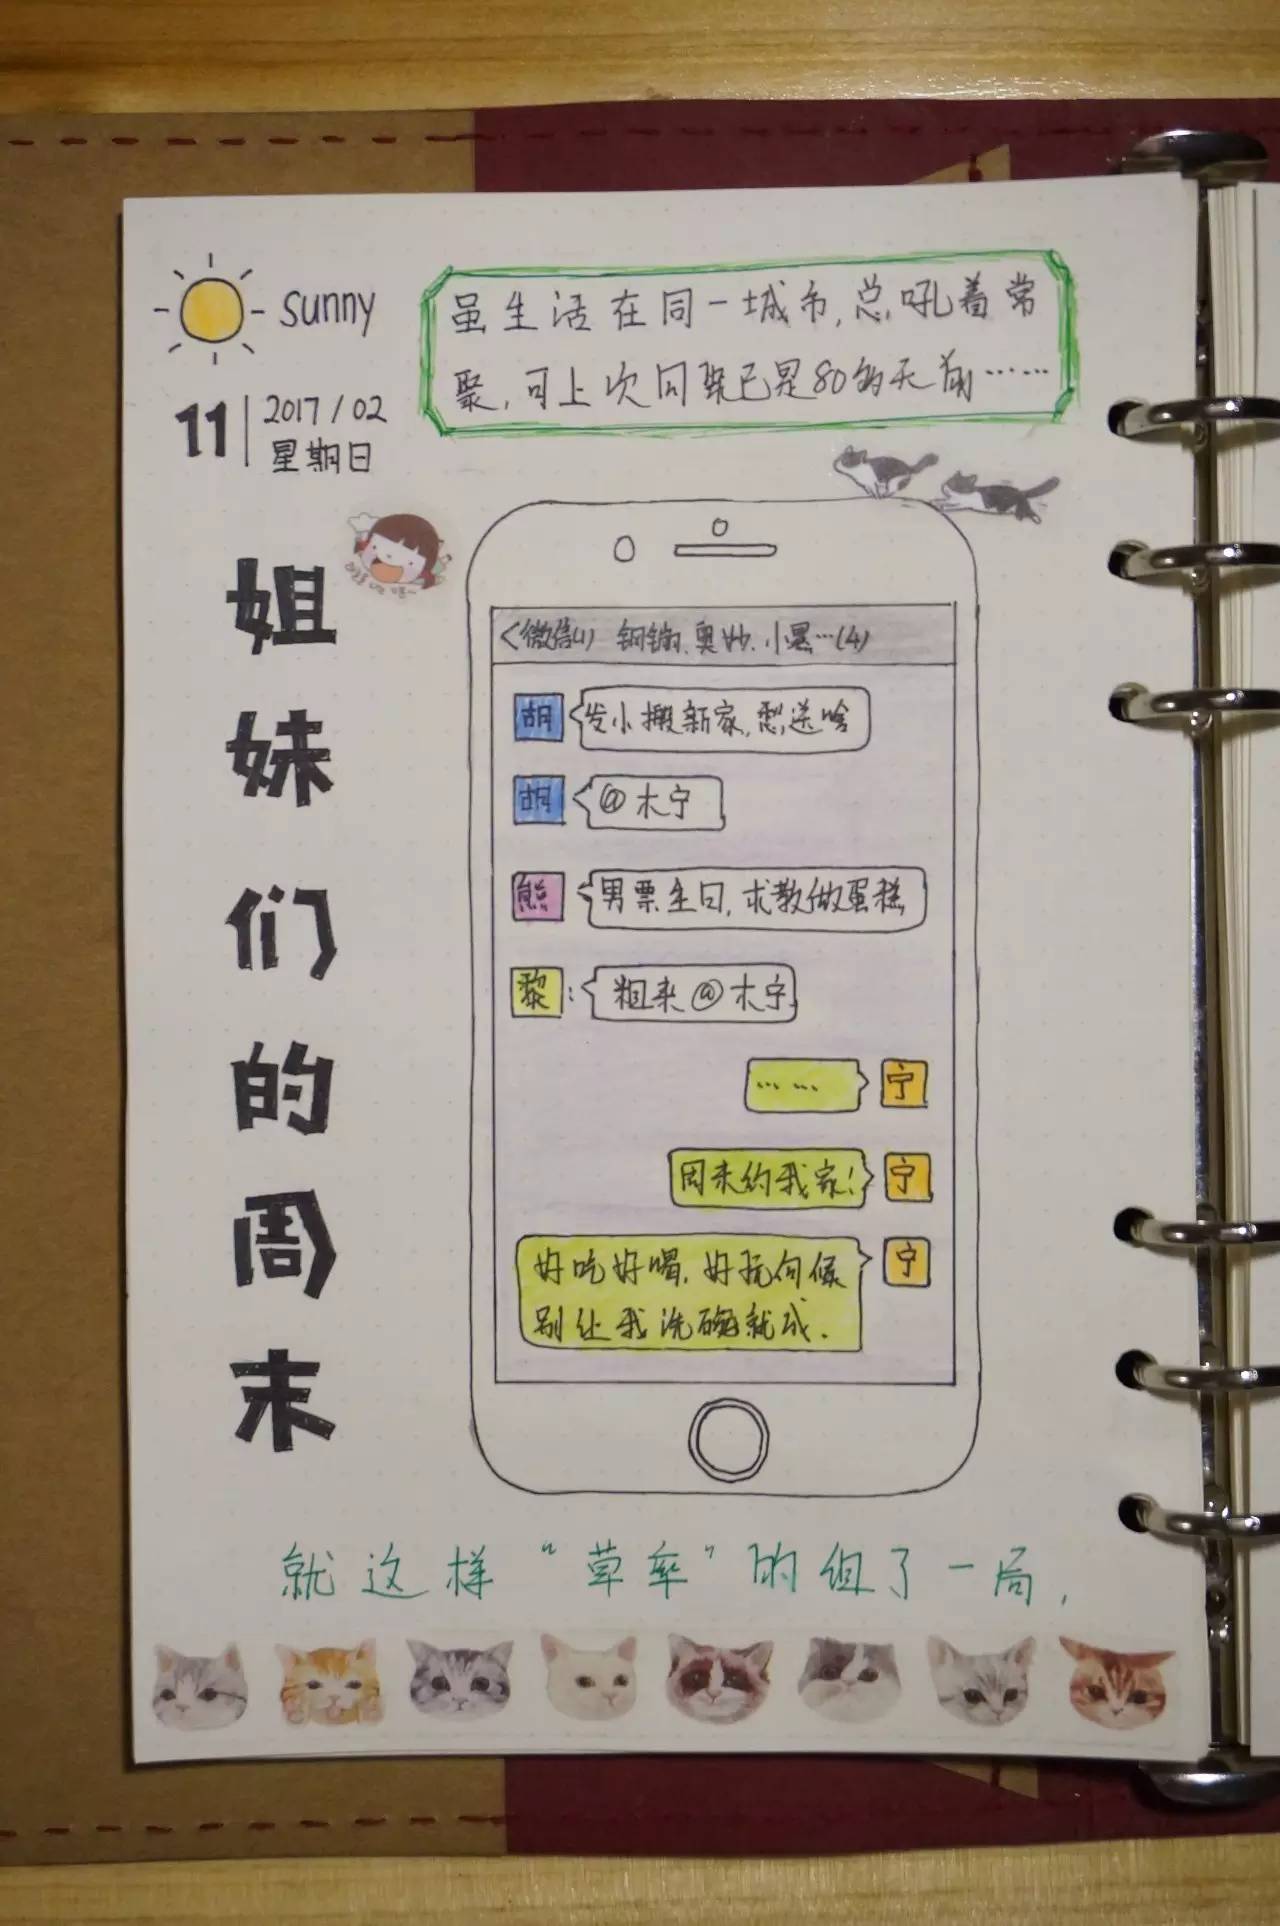 sunny
11
2017/02
星期日
虽生活在同一城市,总吼着常
聚,可上次同聚已是80多天前……
姐妹们的周末
<微信(1) 钢镚、奥妙、小黑…(4)
胡
发小搬新家,愁送啥
胡
@木宁
熊
男票生日,求教做蛋糕
黎:
粗来@木宁
……
宁
周末约我家!
宁
好吃好喝,好玩伺候
别让我洗碗就成.
宁
就这样“草率”的组了一局,